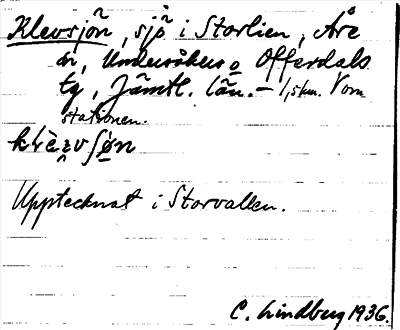 Klevsjön, sjö i Storlien, Åre
sn, Undersåkers o Offerdals
tg, Jämtl. län. – 1,5 km. V om
stationen.
Upptecknat i Storvallen.
C. Lindberg 1936.